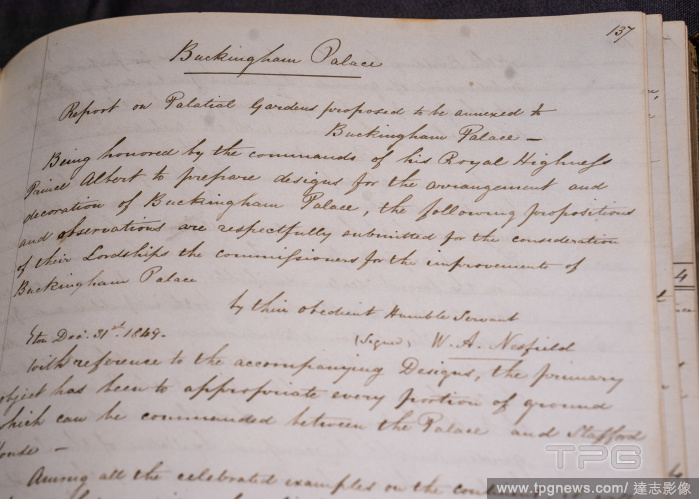 137
Buckingham Palace
Report on Palatial Gardens proposed to be annexed to
Buckingham Palace —
Being honored by the commands of his Royal Highness
Prince Albert to prepare designs for the arrangement and
decoration of Buckingham Palace, the following propositions
and observations are respectfully submitted for the consideration
of their Lordships the commissioners for the improvements of
Buckingham Palace
by their obedient Humble Servant
Eton Dec. 31st. 1849. (Signed) W. A. Nesfield
With reference to the accompanying Designs, the primary
object has been to appropriate every portion of ground
which can be commanded between the Palace and Stafford
House —
Among all the celebrated examples on the
4
TPG
www.tpgnews.com / 達志影像